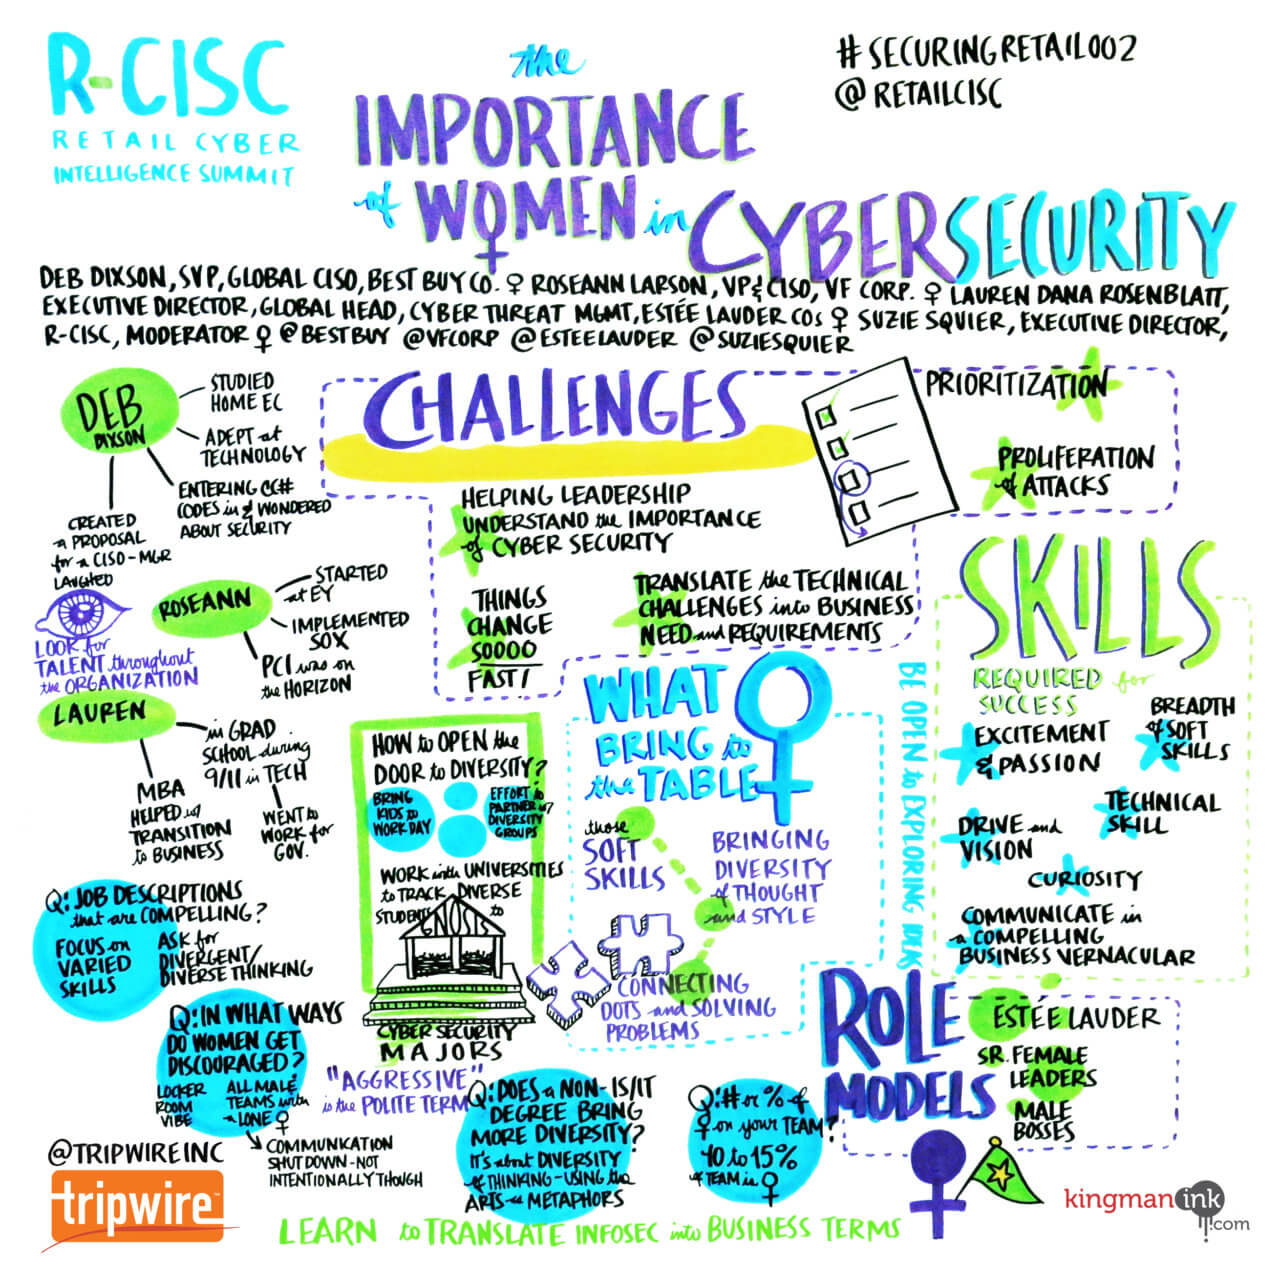 R-CISC
RETAIL CYBER
INTELLIGENCE SUMMIT
the
IMPORTANCE
of WOMEN in CYBERSECURITY
#SECURINGRETAIL002
@RETAILCISC
DEB DIXSON, SVP, GLOBAL CISO, BEST BUY CO. ♀ ROSEANN LARSON, VP & CISO, VF CORP. ♀ LAUREN DANA ROSENBLATT,
EXECUTIVE DIRECTOR, GLOBAL HEAD, CYBER THREAT MGMT, ESTÉE LAUDER COs ♀ SUZIE SQUIER, EXECUTIVE DIRECTOR,
R-CISC, MODERATOR ♀ @BESTBUY @VFCORP @ESTEELAUDER @SUZIESQUIER
DEB
DIXSON
STUDIED
HOME EC
ADEPT at
TECHNOLOGY
ENTERING CC#
CODES in & WONDERED
ABOUT SECURITY
CREATED
a PROPOSAL
for a CISO-MGR
LAUGHED
LOOK for
TALENT throughout
the ORGANIZATION
ROSEANN
STARTED
at EY
IMPLEMENTED
SOX
PCI was on
the HORIZON
LAUREN
in GRAD
SCHOOL during
9/11 in TECH
WENT to
WORK for
GOV.
MBA
HELPED w/
TRANSITION
to BUSINESS
CHALLENGES
PRIORITIZATION
PROLIFERATION
of ATTACKS
HELPING LEADERSHIP
UNDERSTAND the IMPORTANCE
of CYBER SECURITY
THINGS
CHANGE
SOOOO
FAST!
TRANSLATE the TECHNICAL
CHALLENGES into BUSINESS
NEED and REQUIREMENTS
SKILLS
REQUIRED for
SUCCESS
EXCITEMENT
& PASSION
BREADTH
of SOFT
SKILLS
TECHNICAL
SKILL
DRIVE and
VISION
CURIOSITY
COMMUNICATE in
a COMPELLING
BUSINESS VERNACULAR
BE OPEN to EXPLORING IDEAS
WHAT
BRING to
the TABLE
those
SOFT
SKILLS
BRINGING
DIVERSITY
of THOUGHT
and STYLE
CONNECTING
DOTS and SOLVING
PROBLEMS
HOW to OPEN the
DOOR to DIVERSITY?
BRING
KIDS to
WORK DAY
EFFORT to
PARTNER w/
DIVERSITY
GROUPS
WORK with UNIVERSITIES
to TRACK DIVERSE
STUDENTS to
CYBER SECURITY
MAJORS
Q: JOB DESCRIPTIONS
that are COMPELLING?
FOCUS on
VARIED
SKILLS
ASK for
DIVERGENT/
DIVERSE THINKING
Q: IN WHAT WAYS
DO WOMEN GET
DISCOURAGED?
LOCKER
ROOM
VIBE
ALL MALE
TEAMS with
a LONE ♀
COMMUNICATION
SHUT DOWN-NOT
INTENTIONALLY THOUGH
"AGGRESSIVE"
is the POLITE TERM
Q: DOES a NON-IS/IT
DEGREE BRING
MORE DIVERSITY?
IT'S about DIVERSITY
of THINKING-USING the
ARTS as METAPHORS
Q: # or % of
♀ on your TEAM?
10 to 15%
of TEAM is ♀
ROLE
MODELS
ESTÉE LAUDER
SR. FEMALE
LEADERS
MALE
BOSSES
@TRIPWIREINC
tripwire
LEARN to TRANSLATE INFOSEC into BUSINESS TERMS
kingman ink
.com